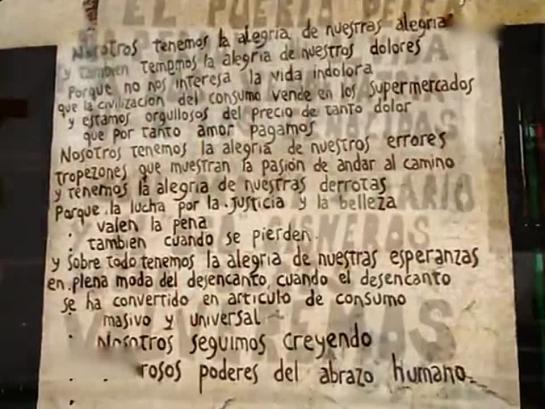 Nosotros tenemos la alegria de nuestras alegrias
y tambien tenemos la alegria de nuestros dolores
Porque no nos interesa la vida indolora
que la civilizacion del consumo vende en los supermercados
y estamos orgullosos del precio de tanto dolor
que por tanto amor pagamos
Nosotros tenemos la alegria de nuestros errores
tropezones que muestran la pasión de andar al camino
y tenemos la alegria de nuestras derrotas
Porque la lucha por la justicia y la belleza
valen la pena
tambien cuando se pierden.
y sobre todo tenemos la alegria de nuestras esperanzas
en plena moda del desencanto, cuando el desencanto
se ha convertido en articulo de consumo
masivo y universal
Nosotros seguimos creyendo
rosos poderes del abrazo humano.